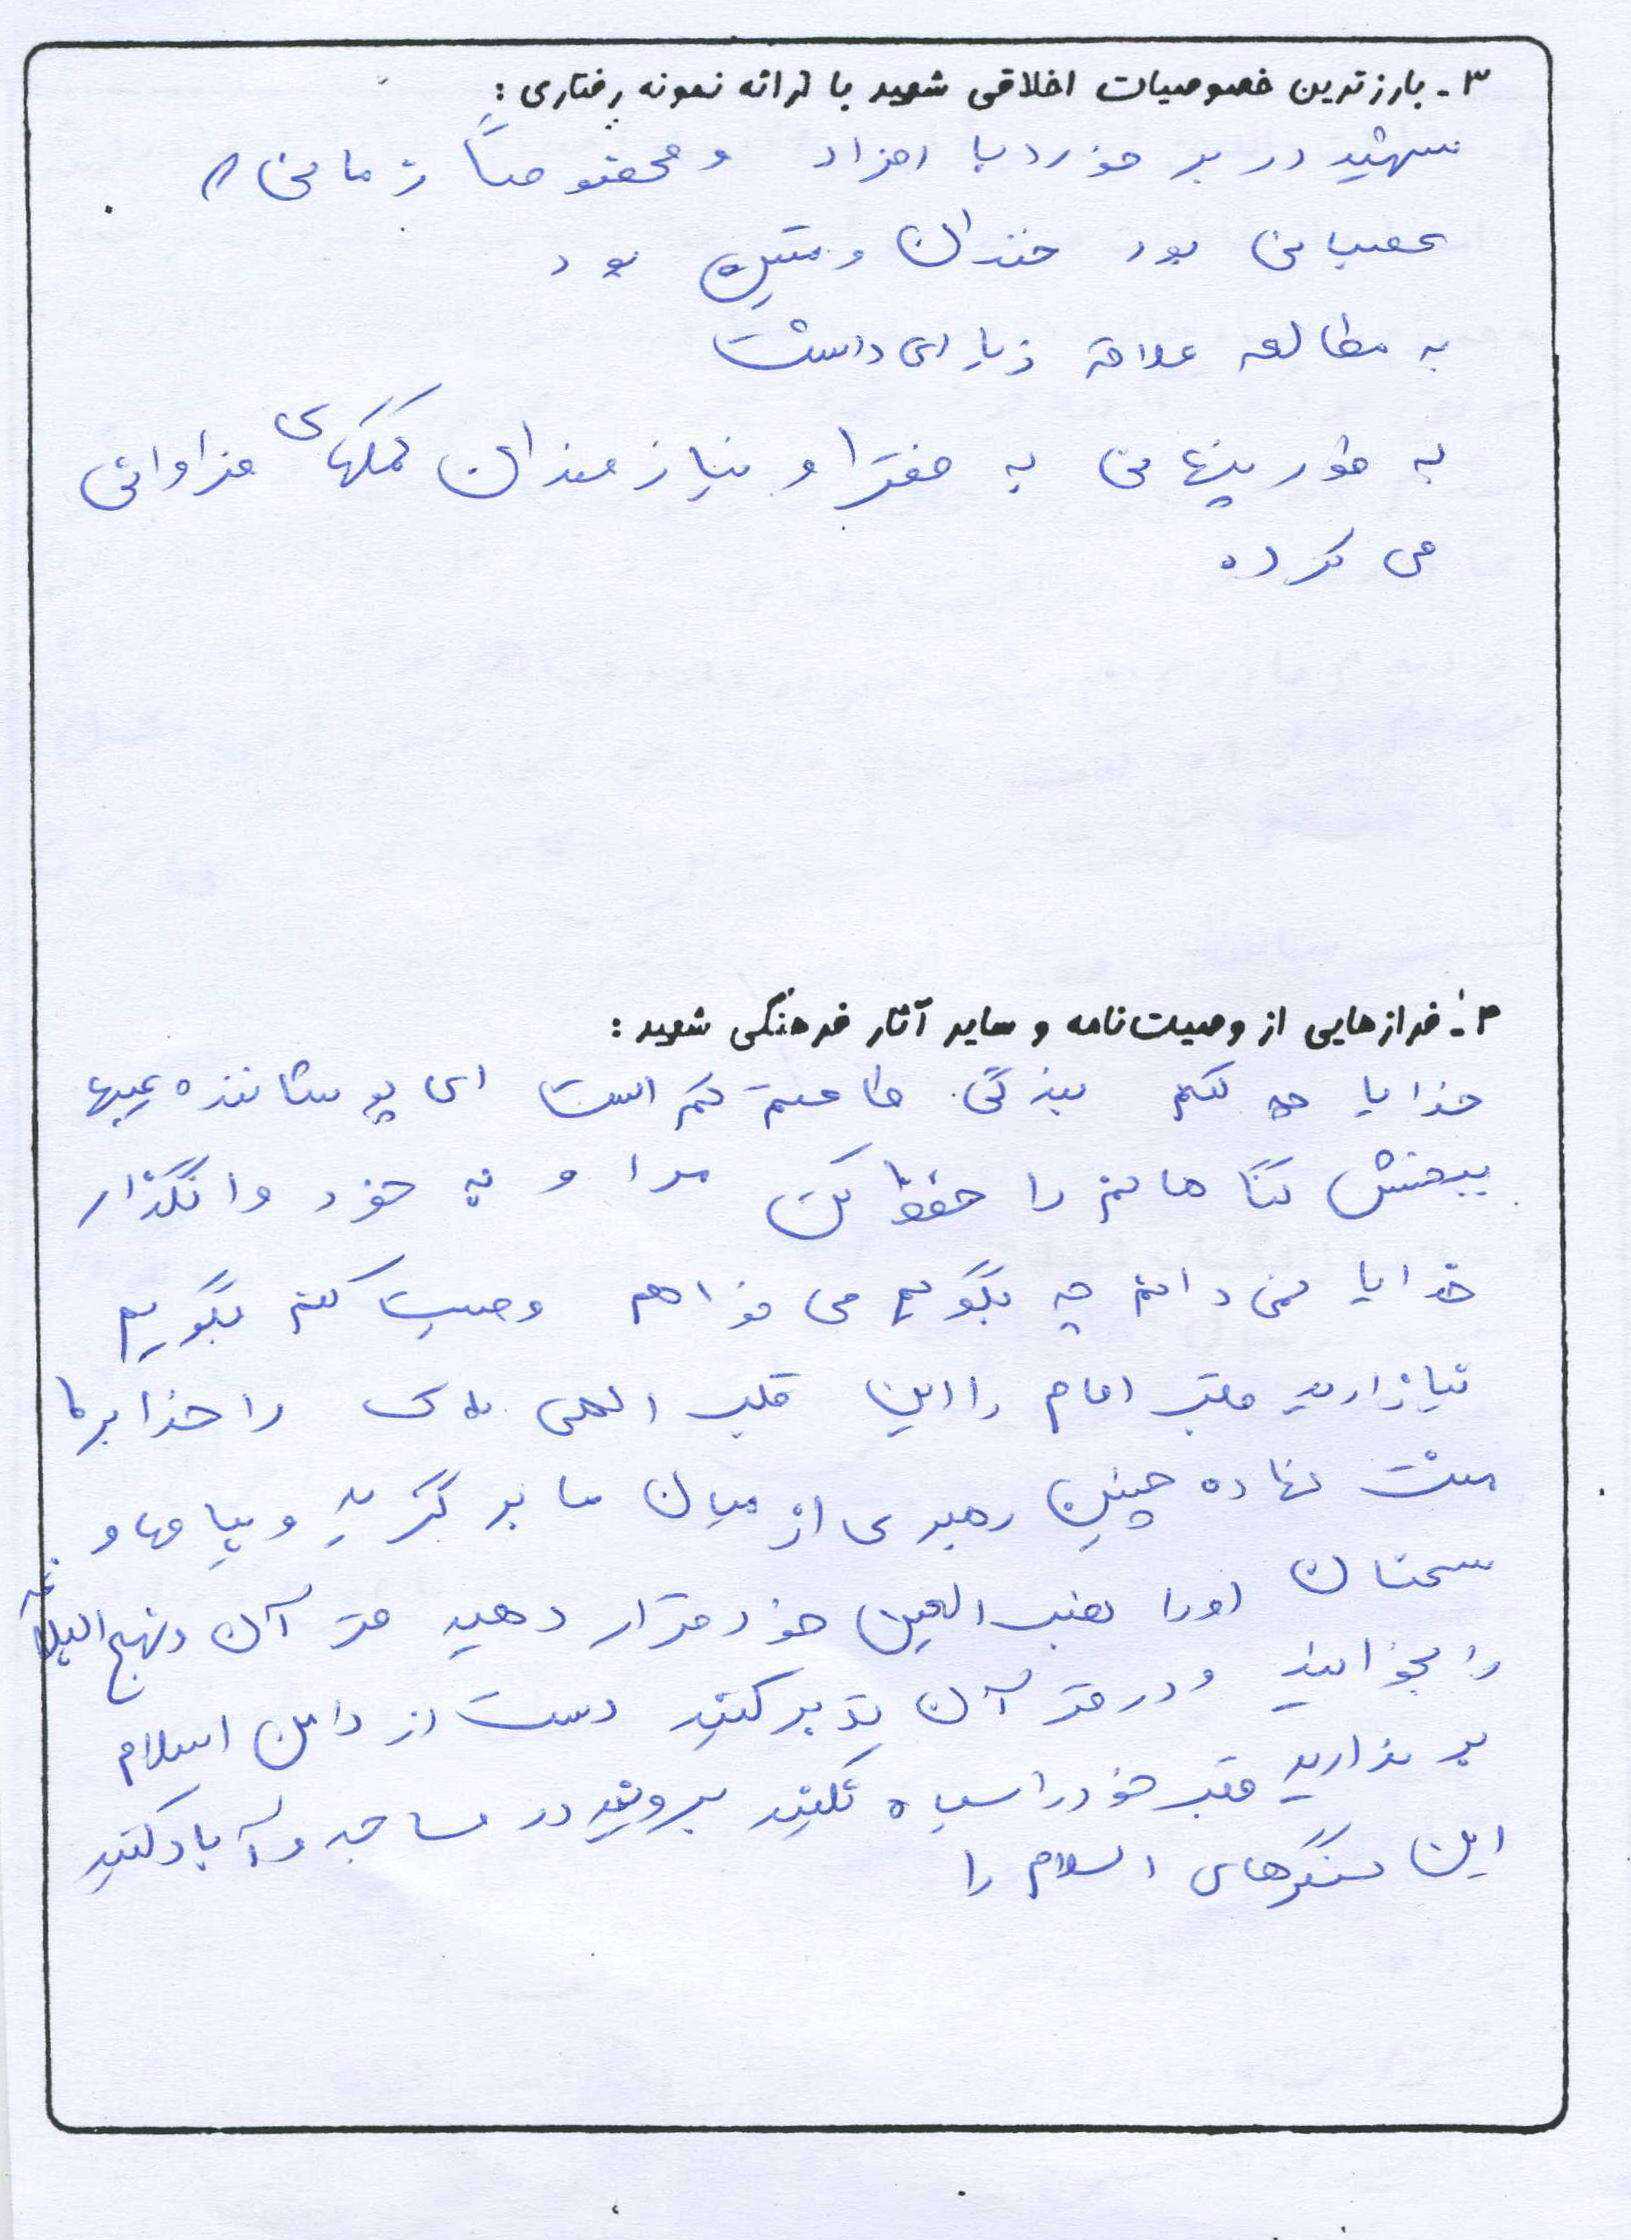 ۳ـ بارزترین خصوصیات اخلاقی شهید با ارائه نمونه رفتاری :
شهید در بر خورد با افراد و مخصوصاً زمانی که
عصبانی بود خندان و متین بود
به مطالعه علاقه زیادی داشت
به طور پنهانی به فقرا و نیازمندان کمکهای فراوانی
می کرده
۴ـ فرازهایی از وصیت‌نامه و سایر آثار فرهنگی شهید :
خدایا چه کنم بندگی طاعتم کم است ای پوشاننده عیبها
ببخش گناهانم را حفظ کن مرا و به خود وانگذار
خدایا نمی دانم چه بگویم می خواهم وصیت کنم بگویم
نیازارید قلب امام را این قلب الهی پاک را خدا بر ما
منت نهاده چنین رهبری از میان ما برگزید و پیامها و
سخنان او را نصب العین خود قرار دهید قرآن و نهج البلاغه
را بخوانید و در قرآن تدبر کنید دست از دامن اسلام
بر ندارید قلب خود را سیاه نکنید بروید در مساجد و آباد کنید
این سنگرهای اسلام را